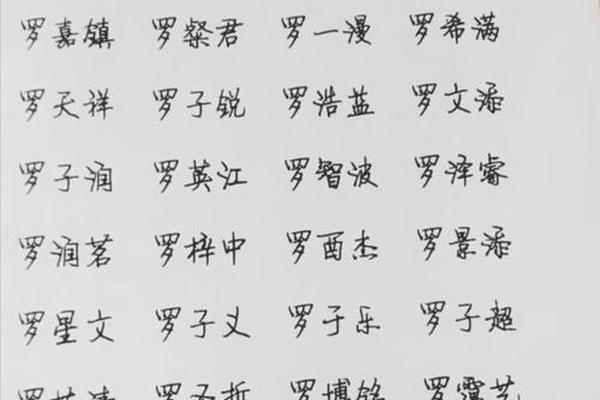 罗嘉镇 罗粲君 罗一漫 罗希满
罗天祥 罗子锐 罗浩蓝 罗文添
罗子润 罗英江 罗智波 罗泽睿
罗润茗 罗梓中 罗酉杰 罗景添
罗星文 罗子义 罗于乐 罗子超
罗 罗 哲 罗博铭 罗霆艺